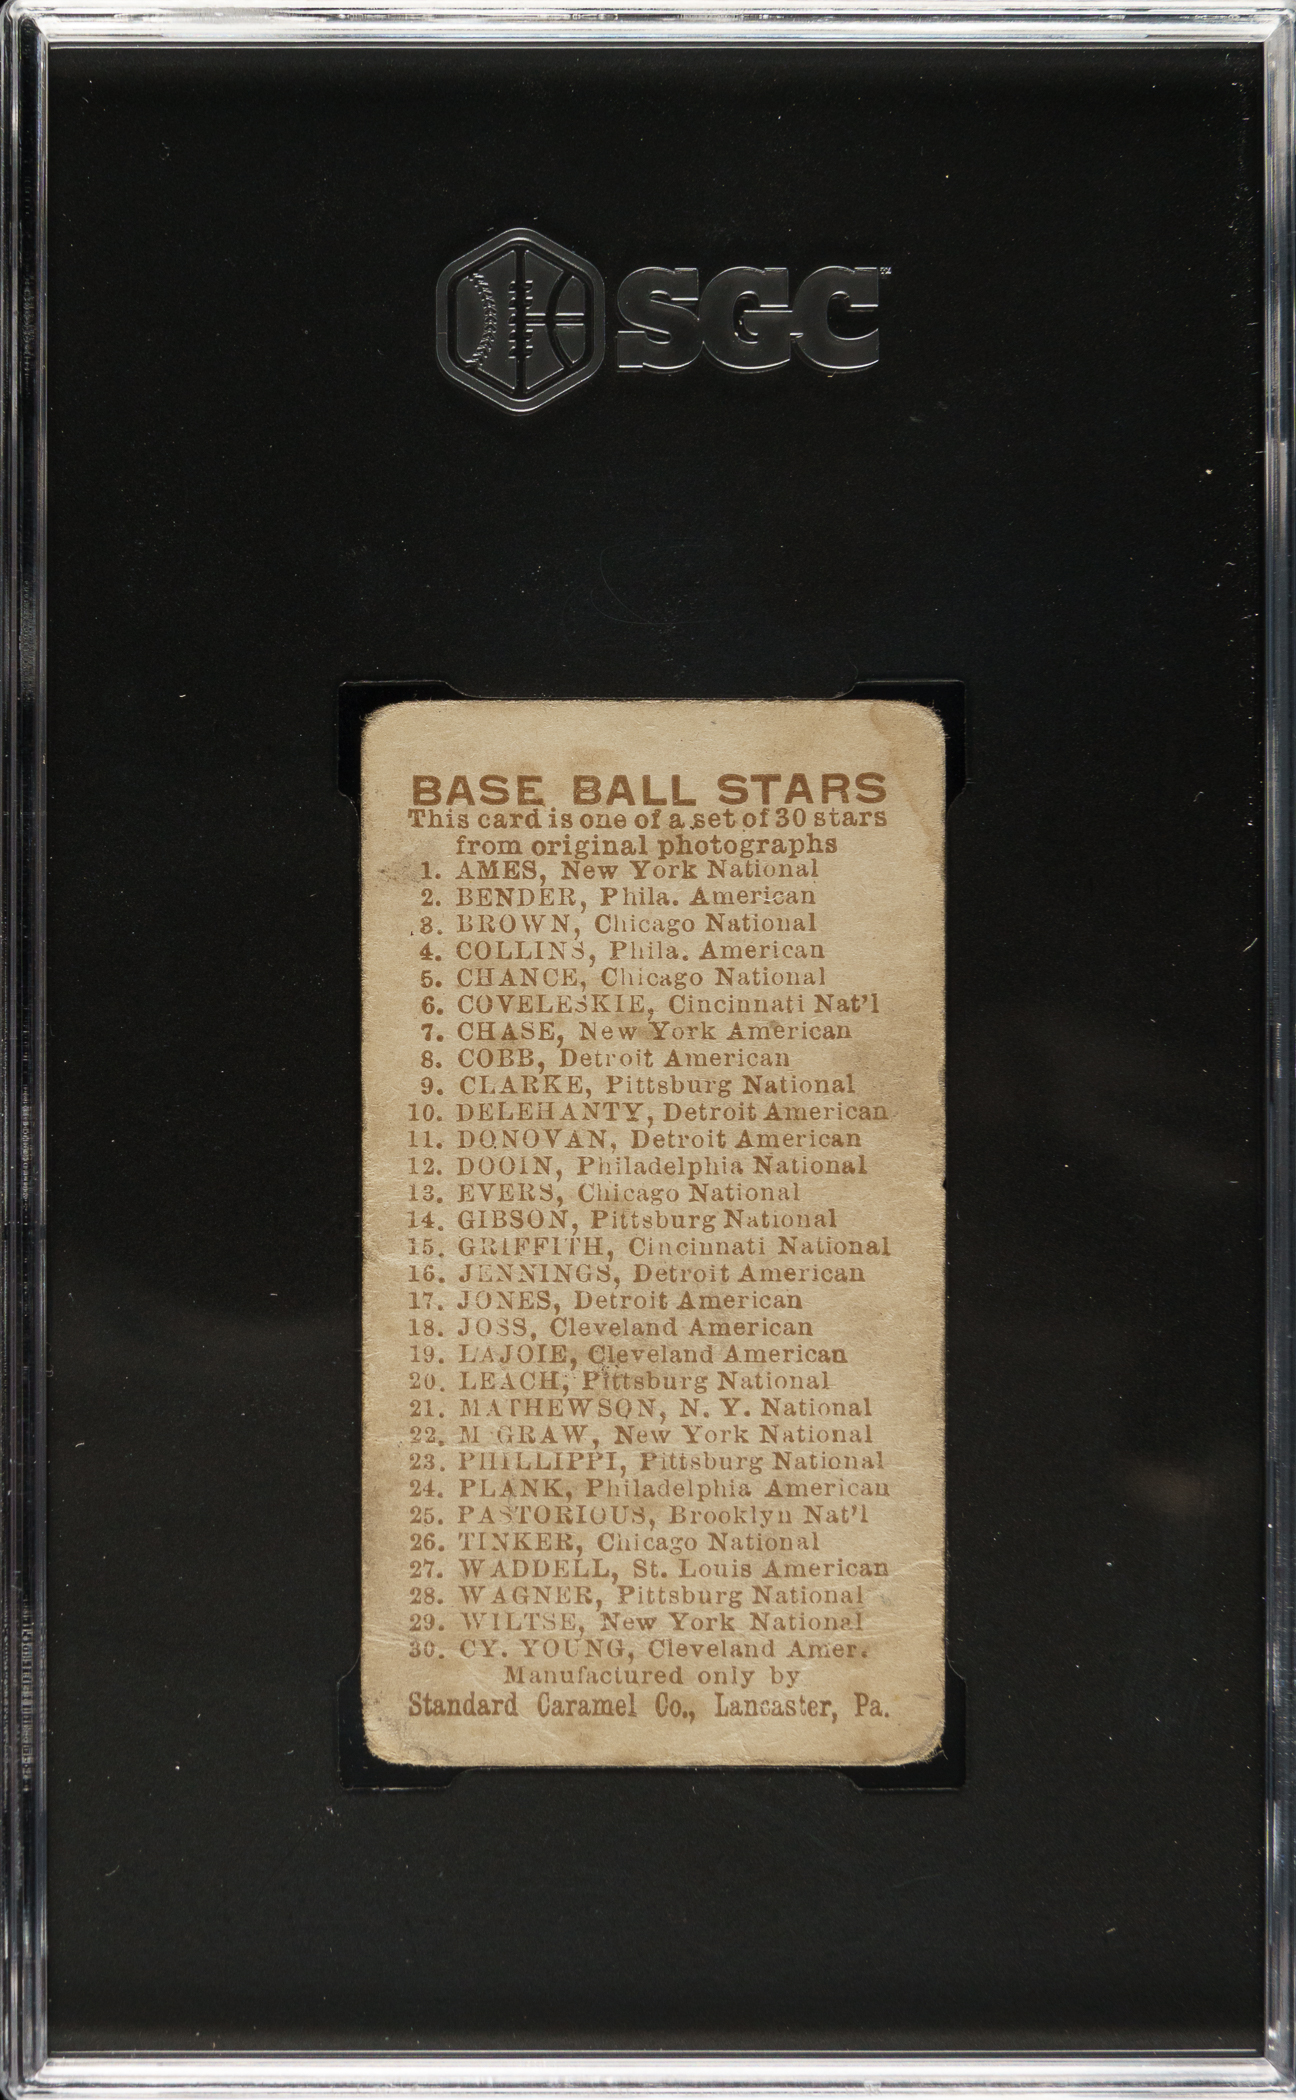 SGC
BASE BALL STARS
This card is one of a set of 30 stars
from original photographs
1. AMES, New York National
2. BENDER, Phila. American
3. BROWN, Chicago National
4. COLLINS, Phila. American
5. CHANCE, Chicago National
6. COVELESKIE, Cincinnati Nat'l
7. CHASE, New York American
8. COBB, Detroit American
9. CLARKE, Pittsburg National
10. DELEHANTY, Detroit American
11. DONOVAN, Detroit American
12. DOOIN, Philadelphia National
13. EVERS, Chicago National
14. GIBSON, Pittsburg National
15. GRIFFITH, Cincinnati National
16. JENNINGS, Detroit American
17. JONES, Detroit American
18. JOSS, Cleveland American
19. LAJOIE, Cleveland American
20. LEACH, Pittsburg National
21. MATHEWSON, N. Y. National
22. M GRAW, New York National
23. PHILLIPPI, Pittsburg National
24. PLANK, Philadelphia American
25. PASTORIOUS, Brooklyn Nat'l
26. TINKER, Chicago National
27. WADDELL, St. Louis American
28. WAGNER, Pittsburg National
29. WILTSE, New York National
30. CY. YOUNG, Cleveland Amer.
Manufactured only by
Standard Caramel Co., Lancaster, Pa.